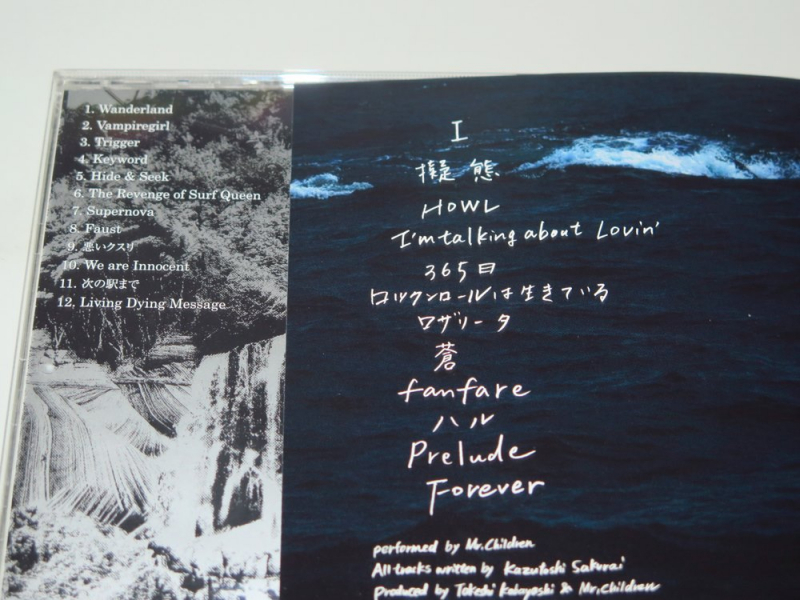 1. Wanderland
2. Vampiregirl
3. Trigger
4. Keyword
5. Hide & Seek
6. The Revenge of Surf Queen
7. Supernova
8. Faust
9. 悪いクスリ
10. We are Innocent
11. 次の駅まで
12. Living Dying Message
I
擬態
HOWL
I'm talking about Lovin'
365日
ロックンロールは生きている
ロザリータ
蒼
fanfare
ハル
Prelude
Forever
performed by Mr.Children
All tracks written by Kazutoshi Sakurai
Produced by Takeshi Kobayashi & Mr.Children